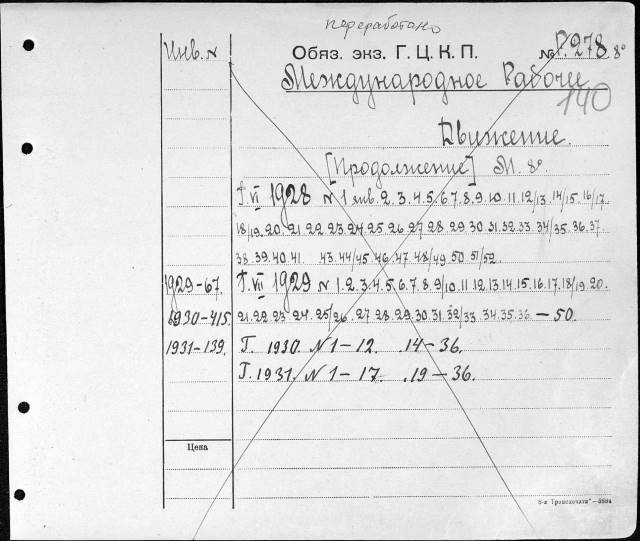 переработано
Инв. №
Обяз. экз. Г. Ц. К. П. № Р. 278 8°
Международное Рабочее
140
Движение.
[Продолжение] М. 8°.
Г. VI 1928 № 1 янв. 2. 3. 4. 5. 6. 7. 8. 9. 10. 11. 12/13. 14/15. 16/17.
18/19. 20. 21. 22. 23. 24. 25. 26. 27. 28. 29. 30. 31. 32. 33. 34/35. 36. 37.
38. 39. 40. 41. 43. 44/45. 46. 47. 48/49. 50. 51/52.
1929-67. Г. VII 1929 № 1. 2. 3. 4. 5. 6. 7. 8. 9/10. 11. 12. 13. 14. 15. 16. 17. 18/19. 20.
1930-415. 21. 22. 23. 24. 25/26. 27. 28. 29. 30. 31. 32/33. 34. 35. 36 — 50.
1931-139. Г. 1930. № 1-12. 14-36.
Г. 1931. № 1-17. 19-36.
Цена
8-я „Транспечати“—3884